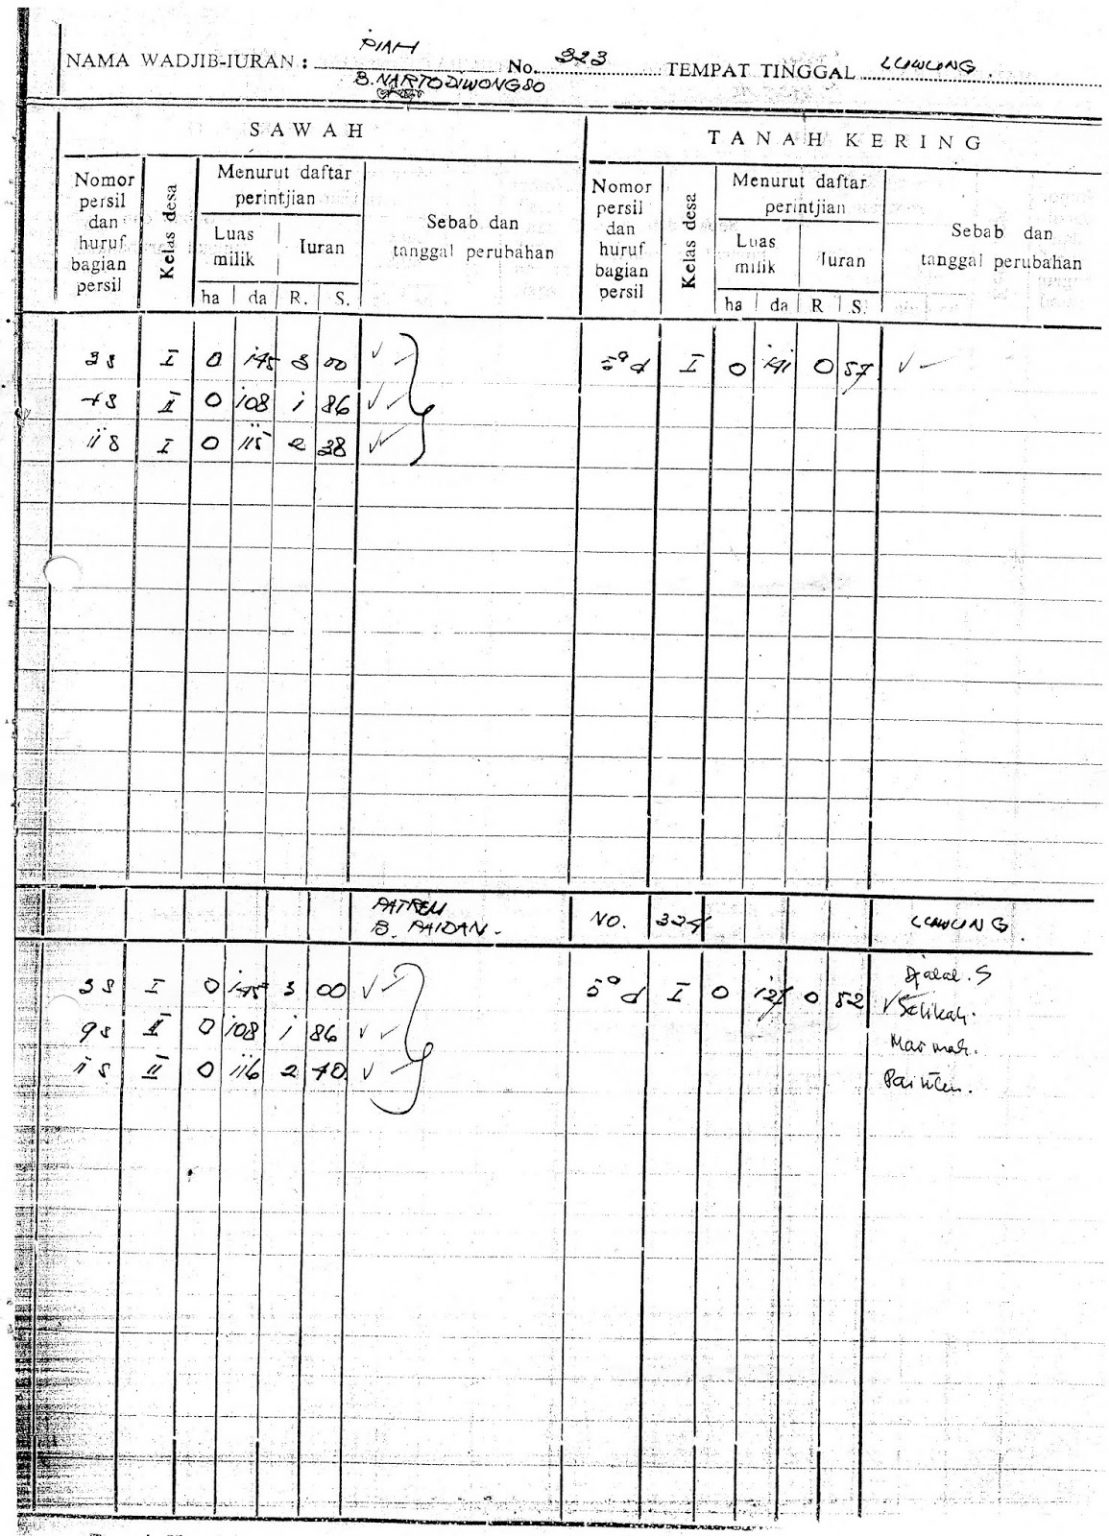 PIAH
NAMA WADJIB-IURAN : B. NARTODIWONGSO No. 323 TEMPAT TINGGAL
SAWAH TANAH KERING
Nomor persil dan huruf bagian persil
Kelas desa
Menurut daftar perintjian
Luas milik
Iuran
ha da R. S.
Sebab dan tanggal perubahan
Nomor persil dan huruf bagian persil
Kelas desa
Menurut daftar perintjian
Luas milik
Iuran
ha da R S.
Sebab dan tanggal perubahan
I 0 145 3 00 I 0 141 0 57
II 0 108 1 86
11 S I 0 115 2 38
B. PAIDAN. NO. 324
3 S I 0 145 3 00 I 0 127 0 52 Djalal. S
9 S II 0 108 1 86 Marmah.
11 S II 0 116 2 40